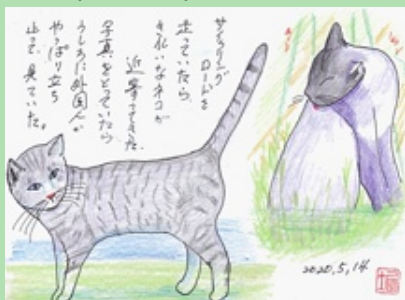 サイクリング
ロードを
走っていたら
きれいなネコが
近寄ってきた
写真をとっていたら
うしろに外国人が
やっぱり立ち
止って見ていた。
2020,5,14